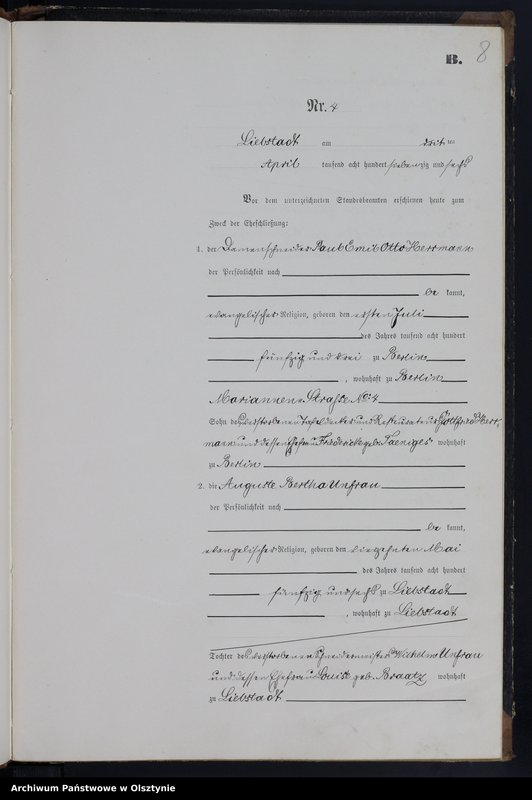 B. 8
Nr. 4
Liebstadt am drit ten
April tausend acht hundert siebenzig und sechs
Vor dem unterzeichneten Standesbeamten erschienen heute zum
Zweck der Eheschließung:
1. der Damenschneider Paul Emil Otto Herrmann
der Persönlichkeit nach
be kannt,
evangelischer Religion, geboren den ersten Juli
des Jahres tausend acht hundert
fünfzig und drei zu Berlin
, wohnhaft zu Berlin
Mariannen Straße No: 4
Sohn des verstorbenen Tafeldecker und Restaurateurs Gottfried Herr
mann und dessen Ehefrau Friederike geb. wohnhaft
zu Berlin
2. die Auguste Bertha Unfrau
der Persönlichkeit nach
be kannt,
evangelischer Religion, geboren den vierzehnten Mai
des Jahres tausend acht hundert
fünfzig und sechs zu Liebstadt
, wohnhaft zu Liebstadt
Tochter des verstorbenen Schneidermeisters Wilhelm Unfrau
und dessen Ehefrau Louise geb. Braatz wohnhaft
zu Liebstadt
Archiwum Państwowe w Olsztynie